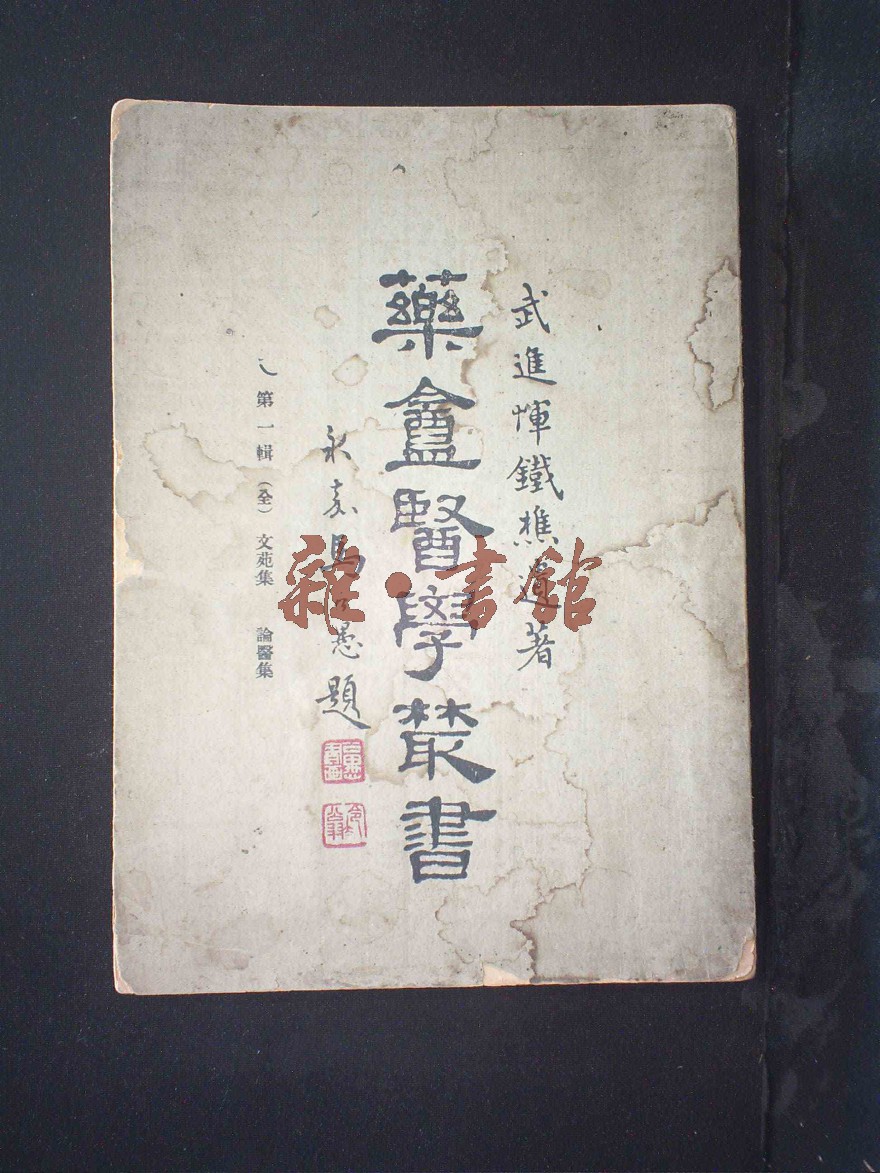 武進惲鐵樵遺著
藥盦醫學叢書
永嘉馬愚題
第一輯（全） 文苑集 論醫集
雜·書館